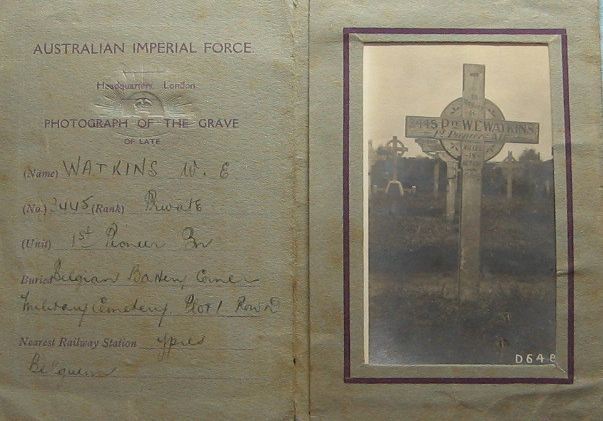 AUSTRALIAN IMPERIAL FORCE.
Headquarters London
PHOTOGRAPH OF THE GRAVE
OF LATE
(Name) WATKINS W. E
(No.) 3445 (Rank) Private
(Unit) 1st Pioneer Bn
Buried Belgian Battery Corner
Military Cemetery. Plot 1. Row D
Nearest Railway Station Ypres
Belgium
3445 Pte W.E. WATKINS
1st Pioneers A.I.F.
D648